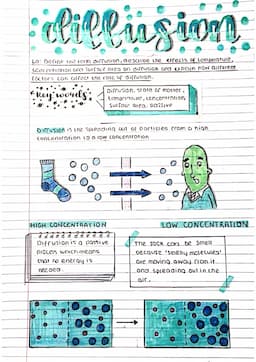 diffusion
LO: Define the term diffusion, describe the effects of temperature,
concentration and surface area on diffusion and explain how different
factors can affect the rate of diffusion.
key words
Diffusion, state of matter,
temperature, concentration,
surface area, passive
Diffusion is the spreading out of particles from a high
concentration to a low concentration
HIGH CONCENTRATION
LOW CONCENTRATION
Diffusion is a passive
process which means
that no energy is
needed.
The sock can be smelt
because 'smelly molecules'
are moving away from it
and spreading out in the
air.